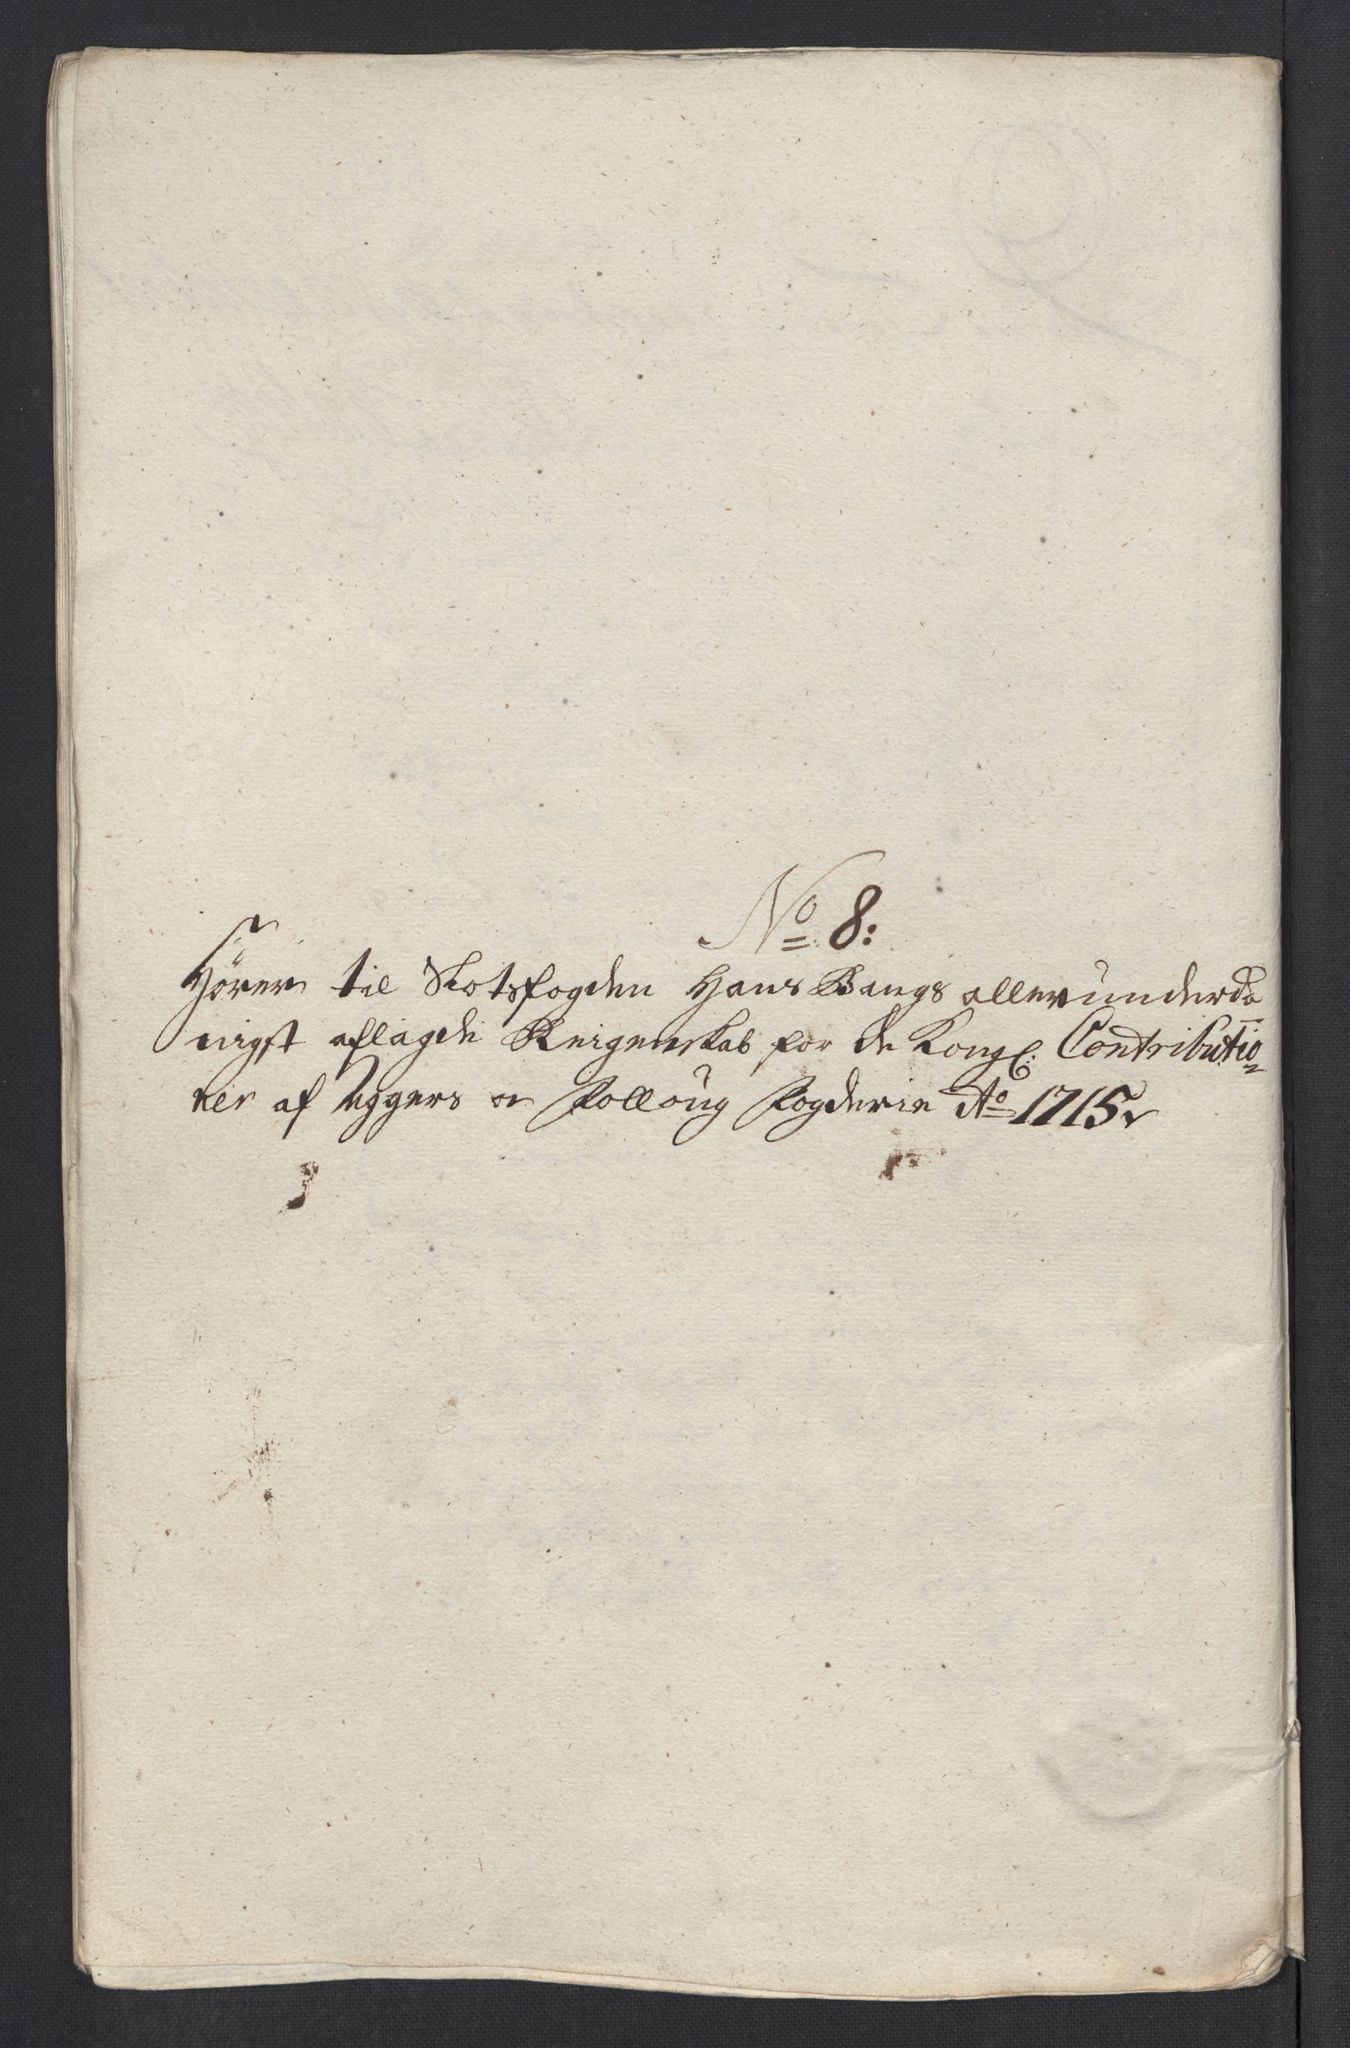 No 8:
Hører til Slotsfogden Hans Bangs allerunderda
nigst aflagde Reigenskab for de Kongl: Contributio=
ner af Aggers oc Folloug Fogderie Ao 1715